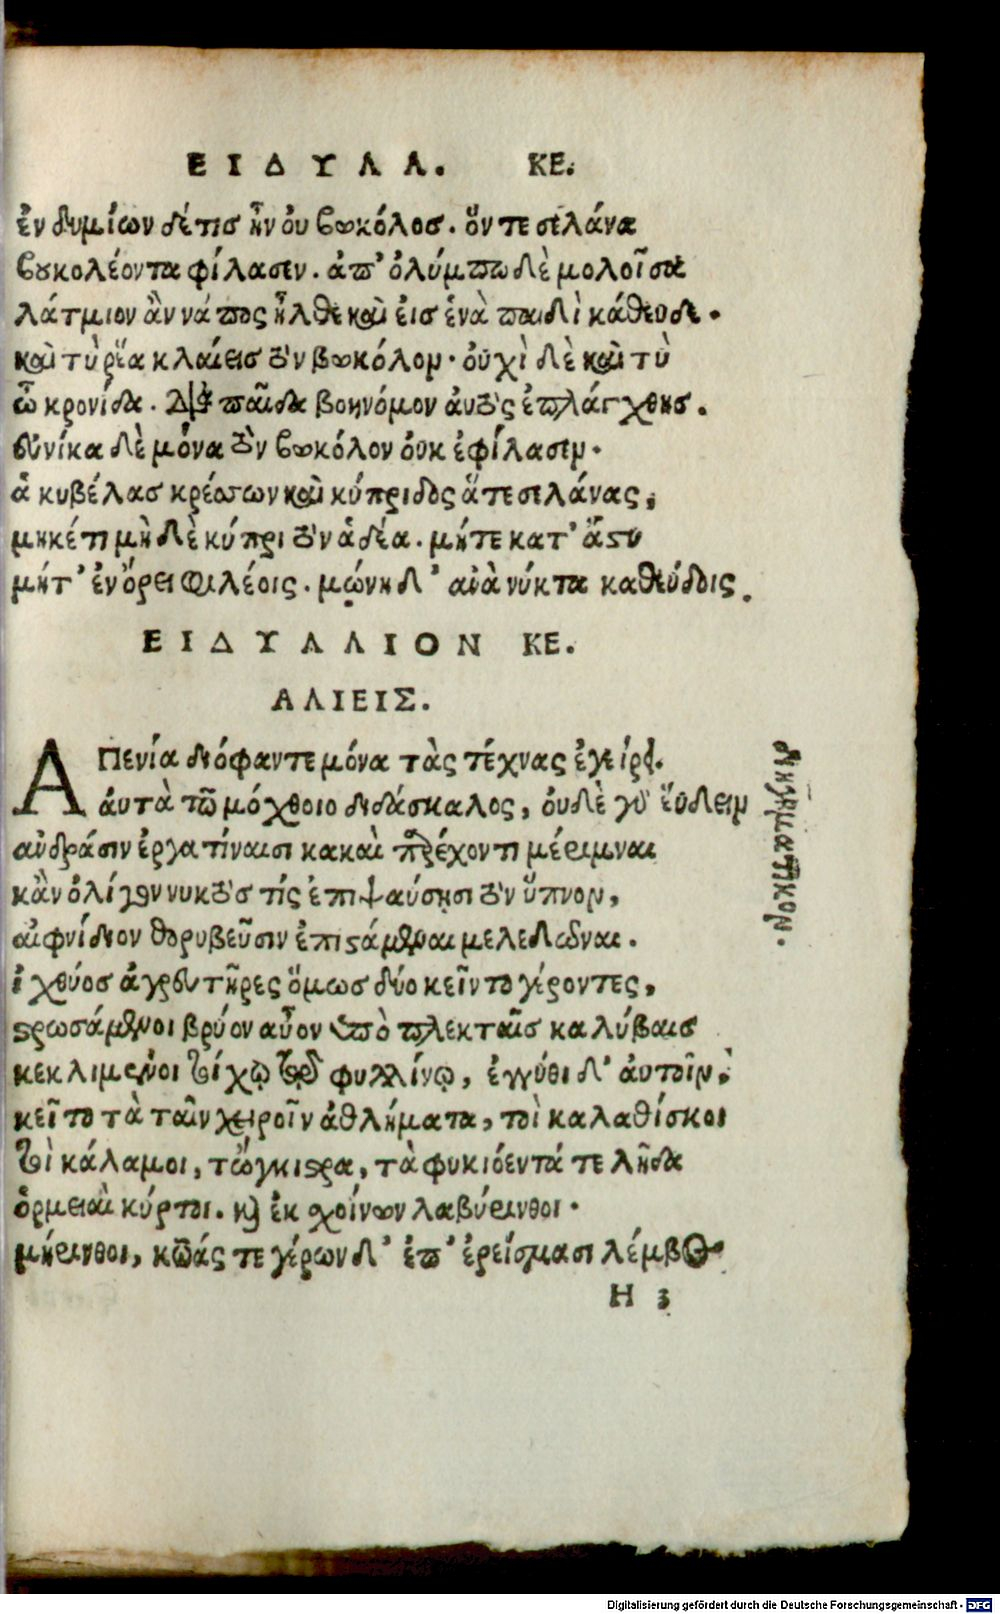 ΕΙΔΥΛΛ. ΚΕ.
ἐνδυμίων δέ τις ἦν οὐ βουκόλος. ὅν τε σελάνα
βουκολέοντα φίλασεν. ἀπ' ὀλύμπω δὲ μολοῖσα
λάτμιον ἂν νάπος ἦλθε καὶ εἰς ἑνὰ παιδὶ κάθευδε.
καὶ τὺ ῥέα κλαίεις τὸν βουκόλον. οὐχὶ δὲ καὶ τὺ
ὦ κρονίδα. διὰ παῖδα βοηνόμον αὐτὸς ἐπλάγχθης.
εὐνίκα δὲ μόνα τὸν βουκόλον οὐκ ἐφίλασεν.
ἁ κυβέλας κρέσσων καὶ κύπριδος ἅτε σελάνας,
μηκέτι μὴ δὲ κύπρι τὸν ἁδέα. μήτε κατ' ἄστυ
μήτ' ἐν ὄρει φιλέοις. μώνη δ' ἀνὰ νύκτα καθεύδοις.
ΕΙΔΥΛΛΙΟΝ ΚΕ.
ΑΛΙΕΙΣ.
Α Πενία διόφαντε μόνα τὰς τέχνας ἐγείρει.
αὐτὰ τῶ μόχθοιο διδάσκαλος, οὐδὲ γὰρ εὕδειν
ἀνδράσιν ἐργατίναισι κακαὶ παρέχοντι μέριμναι
κἂν ὀλίγον νυκτὸς τίς ἐπιψαύσησι τὸν ὕπνον,
αἰφνίδιον θορυβεῦσιν ἐπιστάμεναι μελεδῶναι.
ἰχθύος ἀγρευτῆρες ὅμως δύο κεῖντο γέροντες,
στρωσάμενοι βρύον αὖον ὑπὸ πλεκταῖς καλύβαισ
κεκλιμένοι τοίχῳ τῷ φυλλίνῳ, ἐγγύθι δ' αὐτοῖν.
κεῖτο τὰ ταῖν χειροῖν ἀθλήματα, τοὶ καλαθίσκοι
τοὶ κάλαμοι, τὤγκιστρα, τὰ φυκιόεντά τε λῆδα
ὁρμειαὶ κύρτοι. καὶ ἐκ σχοίνων λαβύρινθοι.
μήρινθοι, κῶάς τε γέρων δ' ἐπ' ἐρείσμασι λέμβος
Η 3
διηγηματικον.
Digitalisierung gefördert durch die Deutsche Forschungsgemeinschaft - DFG